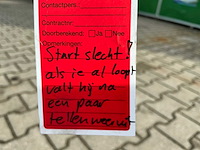 Contactpers.:
Contractnr.:
Doorberekend: Ja Nee
Opmerkingen:
Start slecht!
als ie al loopt
valt hij na
een paar
tellen weer uit